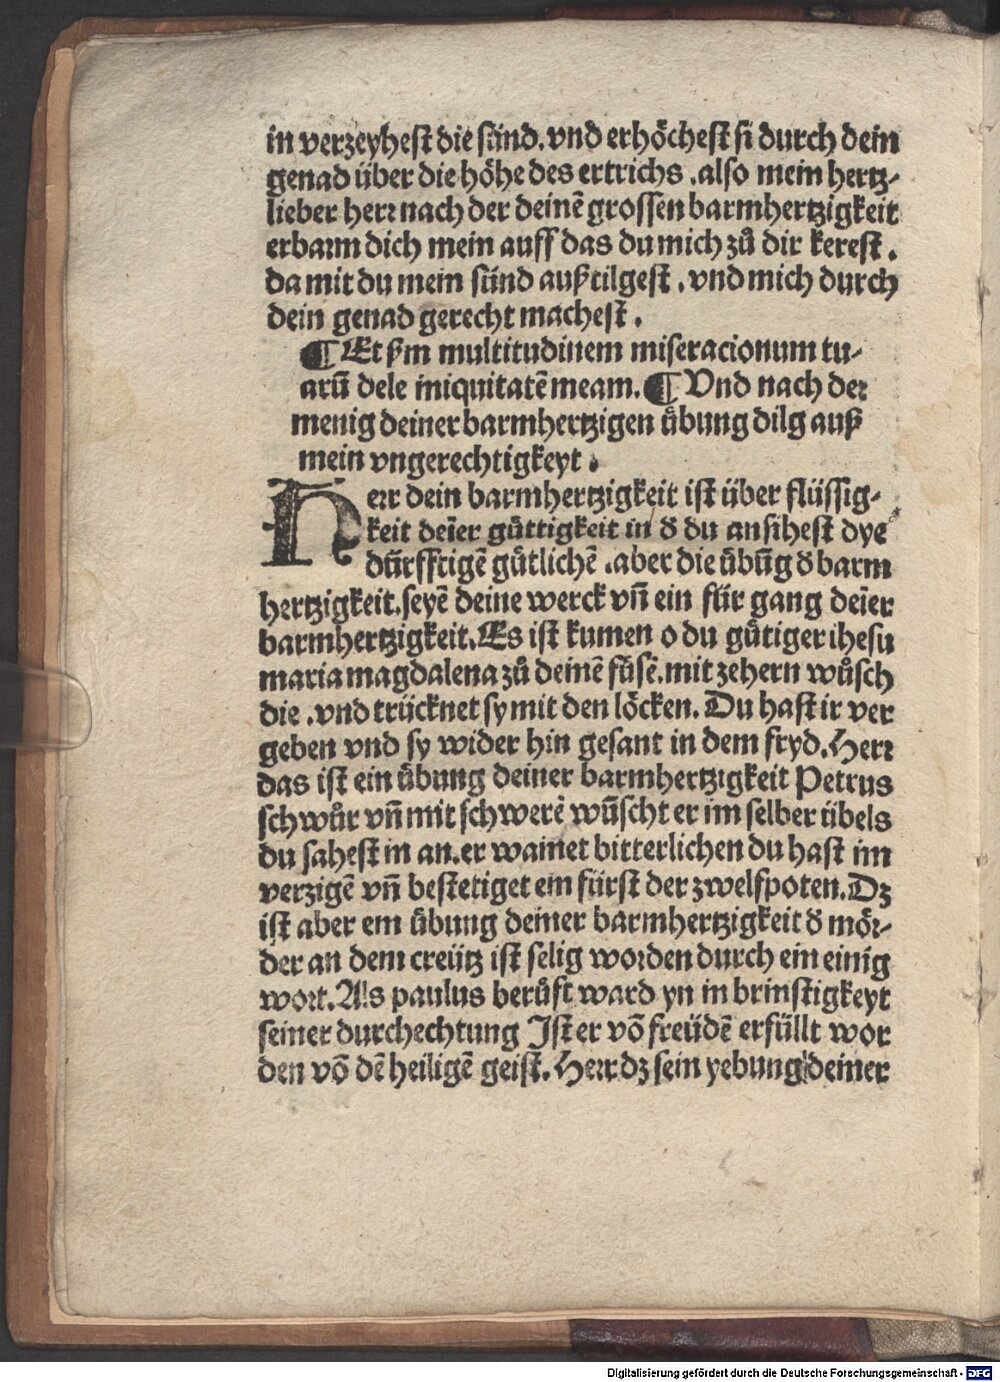 in verzeyhest die sünd. vnd erhöchest si durch dein
genad über die höhe des ertrichs . also mein hertz-
lieber herꝛ nach der deinē grossen barmhertzigkeit
erbarm dich mein auff das du mich zů dir kerest .
da mit du mein sünd außtilgest . vnd mich durch
dein genad gerecht machest .
¶ Et ßm multitudinem miseracionum tu-
arū dele iniquitatē meam. ¶ Vnd nach deꝛ
menig deiner barmhertzigen übung dilg auß
mein vngerechtigkeyt .
Herꝛ dein barmhertzigkeit ist über flüssig-
keit deīer güttigkeit in ꝺ du ansihest dye
dürfftigē gütlichē . aber die übūg ꝺ barm
hertzigkeit. seyē deine werck vn̄ ein für gang deīer
barmhertzigkeit. Es ist kumen o du gütiger ihesu
maria magdalena zů deinē füsē. mit zehern wůsch
die . vnd trücknet sy mit den löcken. Du hast ir ver
geben vnd sy wider hin gesant in dem fryd. Herꝛ
das ist ein übung deiner barmhertzigkeit Petrus
schwůr vn̄ mit schwerē wūscht er im selber übels
du sahest in an. er wainet bitterlichen du hast im
verzigē vn̄ bestetiget ein fürst der zwelfpoten. Dz
ist aber ein übung deiner barmhertzigkeit ꝺ möꝛ-
der an dem creütz ist selig woꝛden durch ein einig
woꝛt. Als paulus berůft ward yn in brinstigkeyt
seiner durchechtung Ist er vō freüdē erfüllt wor
den vō dē heiligē geist. Herꝛ dz sein yebung deiner
Digitalisierung gefördert durch die Deutsche Forschungsgemeinschaft - DFG